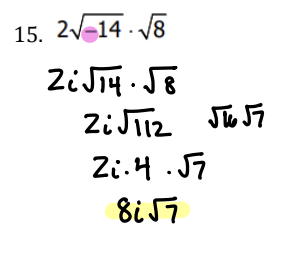 15. 2√-14 · √8
2i√14 · √8
2i√112 √16√7
2i·4 ·√7
8i√7